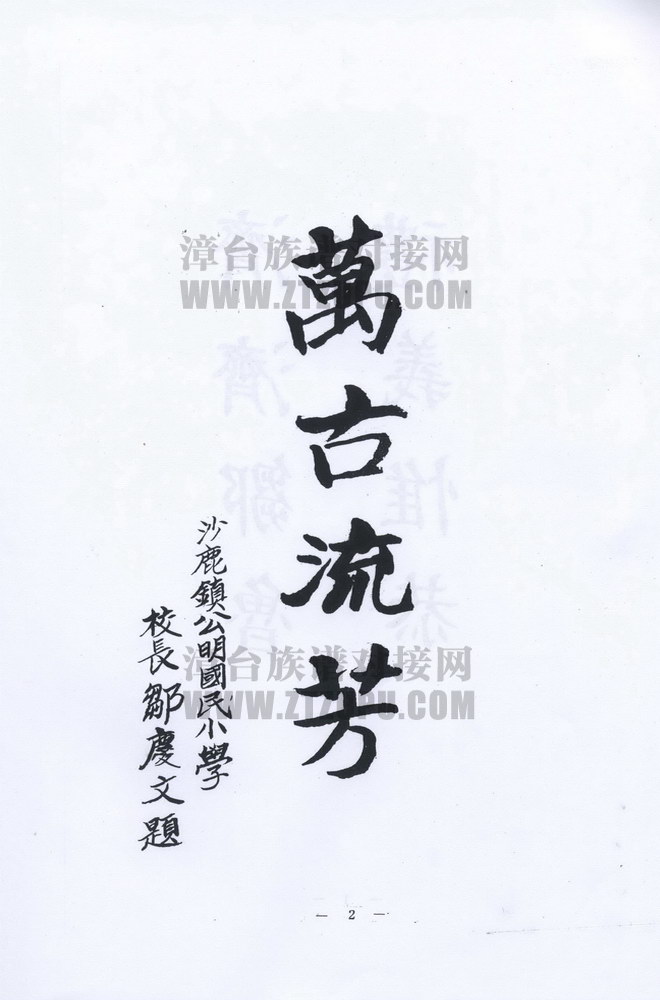 萬古流芳
沙鹿鎮公明國民小學
校長鄒慶文題
漳台族谱对接网
WWW.ZTZUPU.COM
漳台族谱对接网
WWW.ZTZUPU.COM
— 2 —